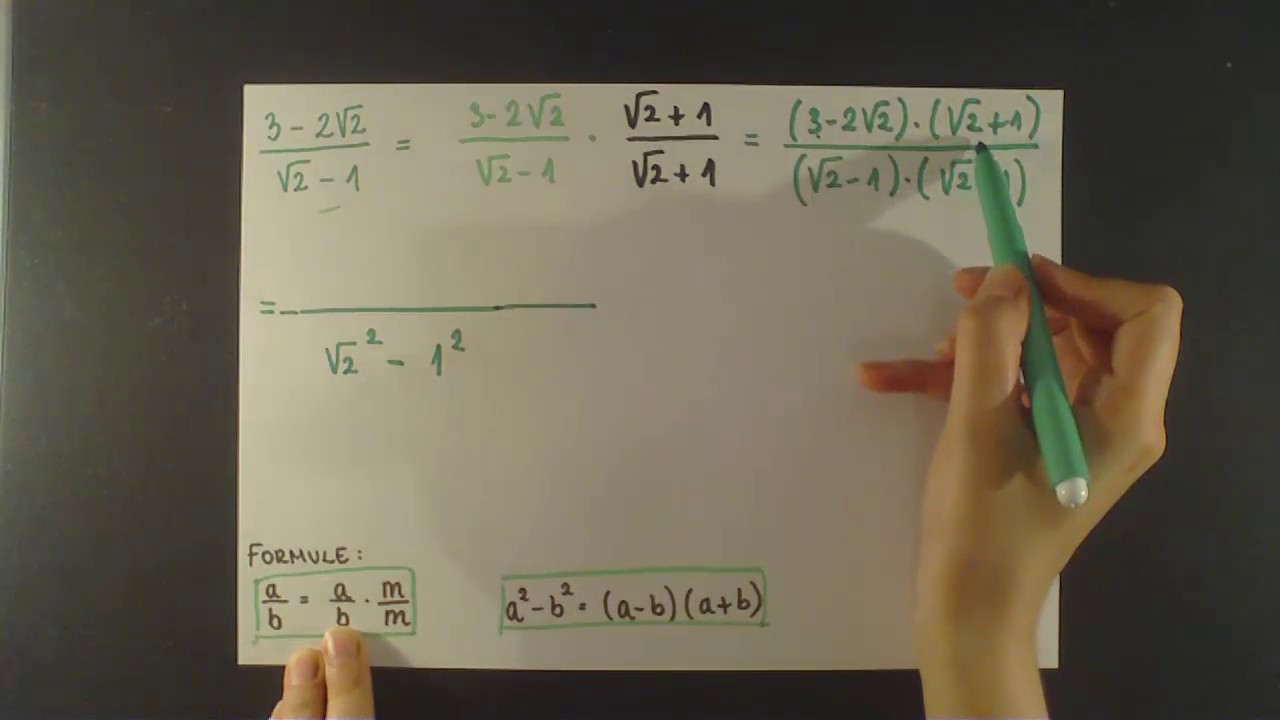 3 - 2√2 / √2 - 1 = 3 - 2√2 / √2 - 1 · √2 + 1 / √2 + 1 = (3 - 2√2) · (√2 + 1) / (√2 - 1) · (√2 1)
= / √2² - 1²
FORMULE:
a/b = a/b · m/m
a² - b² = (a - b)(a + b)